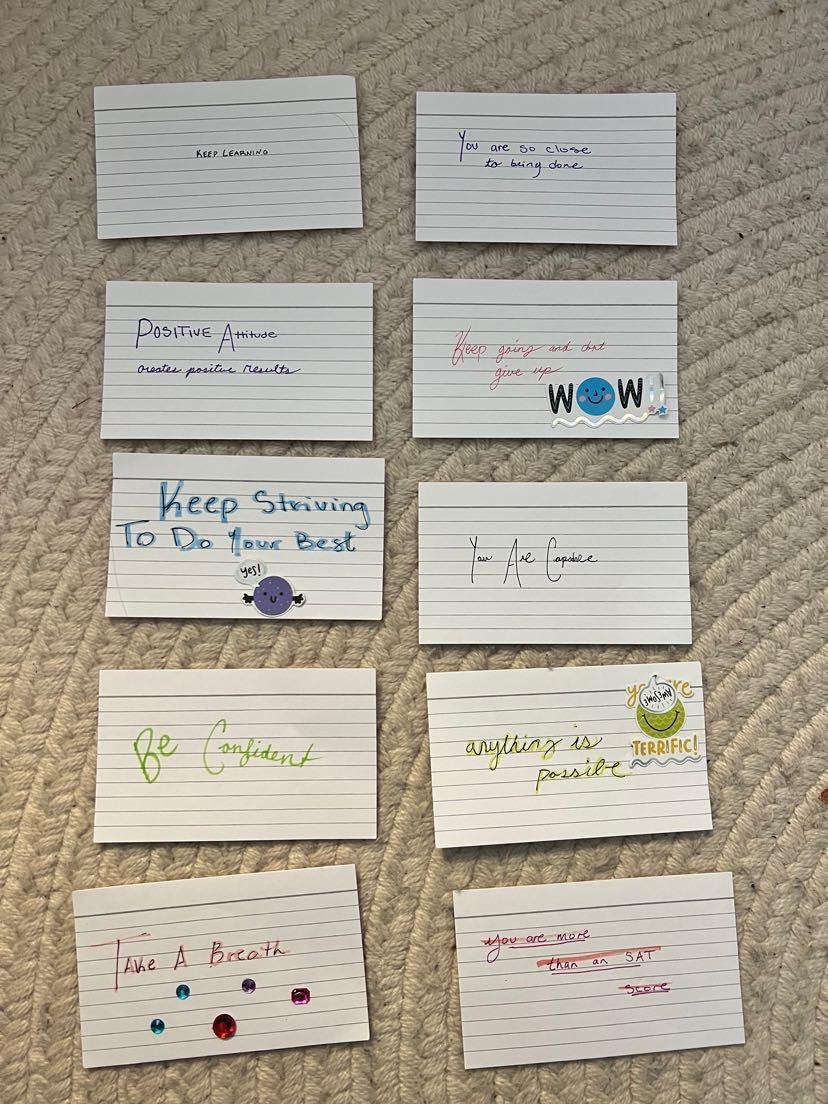 KEEP LEARNING
You are so close
to being done
POSITIVE Attitude
creates positive results
Keep going and dont
give up
WOW!!
Keep Striving
To Do Your Best
yes!
You Are Capable
Be Confident
anything is
possible
you are
AWESOME
TERRIFIC!
TAKE A Breath
you are more
than an SAT
Score